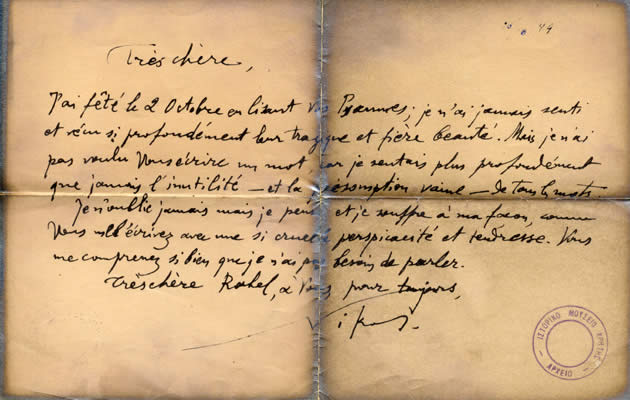 44
Très chère,
J'ai fêté le 2 Octobre en lisant vos Psaumes; je n'ai jamais senti
et vécu si profondément leur tragique et fière beauté. Mais je n'ai
pas voulu Vous écrire un mot car je sentais plus profondément
que jamais l'inutilité – et la présomption vaine – de tous les mots.
Je n'oublie jamais mais je pense et je souffre à ma façon, comme
Vous m'écrivez avec une si cruelle perspicacité et tendresse. Vous
me comprenez si bien que je n'ai pas besoin de parler.
Très chère Rahel, à Vous pour toujours,
ΙΣΤΟΡΙΚΟ ΜΟΥΣΕΙΟ ΚΡΗΤΗΣ
ΑΡΧΕΙΟ